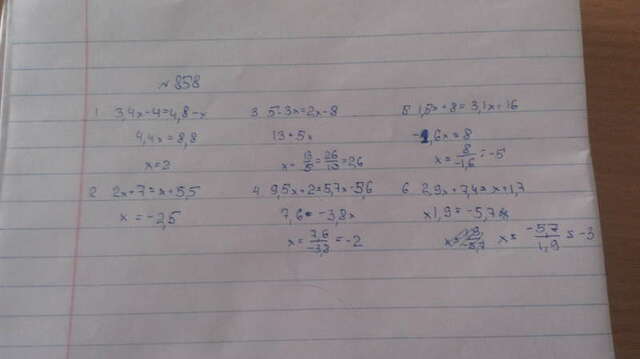 №858
1. 3,4x-4=4,8-x
4,4x=8,8
x=2
2. 2x+7=x+5,5
x=-2,5
3. 5-3x=2x-8
13=5x
x=13/5=26/10=2,6
4. 9,5x+2=5,7x-5,6
7,6=-3,8x
x=7,6/-3,8=-2
5. 1,5x+8=3,1x+16
-1,6x=8
x=8/-1,6=-5
6. 2,9x+7,4=x+1,7
x1,9=-5,7
x=-5,7/1,9=-3